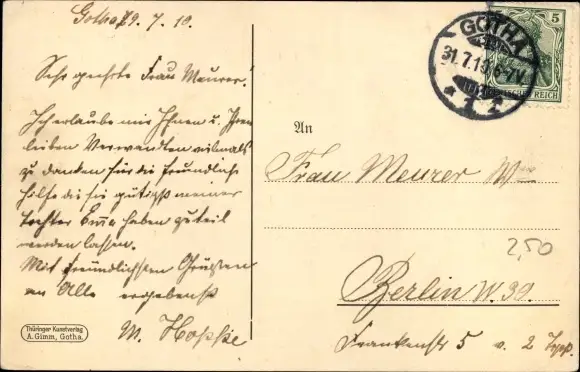 Gotha 29. 7. 10.
Sehr geehrte Frau Meurer!
Ich erlaube mir Ihnen u. Ihren
lieben Verwandten vielmals
zu danken für die freundliche
Hilfe die sie gütigst meiner
Tochter Emma haben zuteil
werden lassen.
Mit freundlichsten Grüssen
an Alle ergebenst
M. Hoppe
Thüringer Kunstverlag
A. Gimm, Gotha.
GOTHA
31.7.10.6-7V.
5
DEUTSCHES REICH
An
Frau Meurer Wwe
2,50
Berlin W. 30.
Frankenstr 5 v. 2 Trpp.